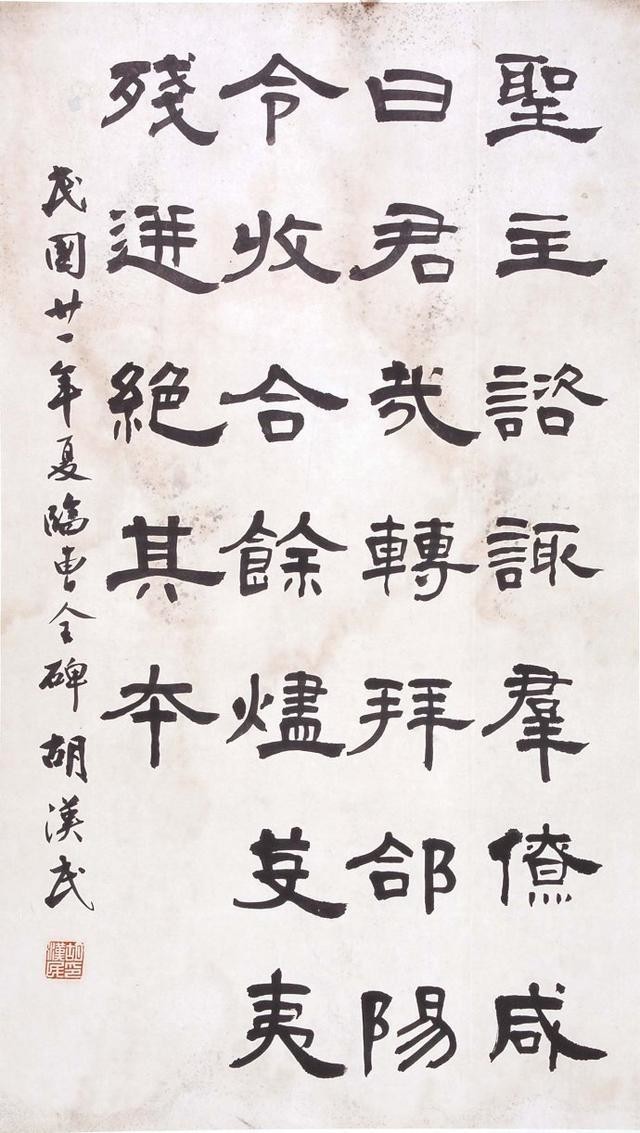 聖主諮諏羣僚咸
曰君哉轉拜郃陽
令收合餘燼芟夷
殘迸絕其本
民國廿一年夏臨曹全碑 胡漢民
胡漢民印